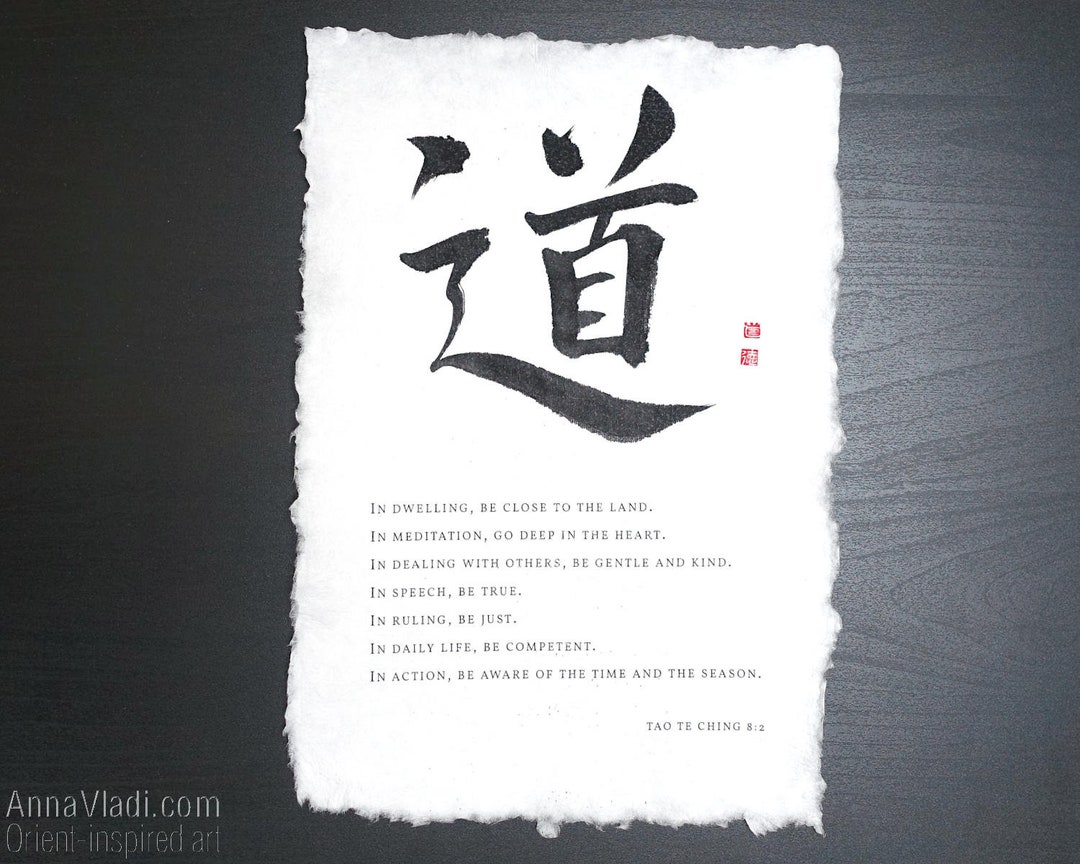 道
道
德
In dwelling, be close to the land.
In meditation, go deep in the heart.
In dealing with others, be gentle and kind.
In speech, be true.
In ruling, be just.
In daily life, be competent.
In action, be aware of the time and the season.
Tao Te Ching 8:2
AnnaVladi.com
Orient-inspired art